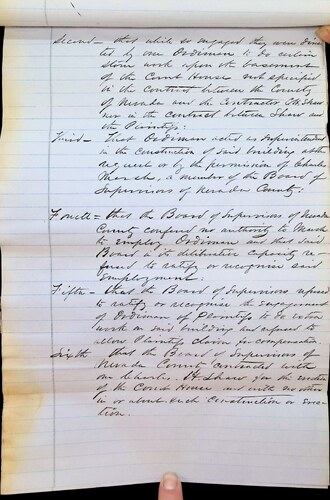 Second – that while so engaged they were direc
ted by one Ordiman to do certain
stone work upon the basement
of the Court House not specified
in the contract between the County
of Nevada and the Contractor
in the contract between Shaw and
the Plaintiffs:
Third – that Ordiman acted as Superintendent
in the construction of said building at the
request or by the permission of Charles
Marsh, a member of the Board of
Supervisors of Nevada County:
Fourth – that the Board of Supervisors of Nevada
County conferred no authority to Marsh
to employ Ordiman and that said
Board in its deliberative capacity re-
fused to ratify or recognize said
Employment;
Fifth – that the Board of Supervisors refused
to ratify or recognize the engagement
of Ordiman of Plaintiffs to do extra
work on said building and refused to
allow Plaintiffs claim for compensation.
Sixth – that the Board of Supervisors of
Nevada County contracted with
one Charles H. Shaw for the erection
of the Court House and with no other
in or about such construction or erec-
tion.